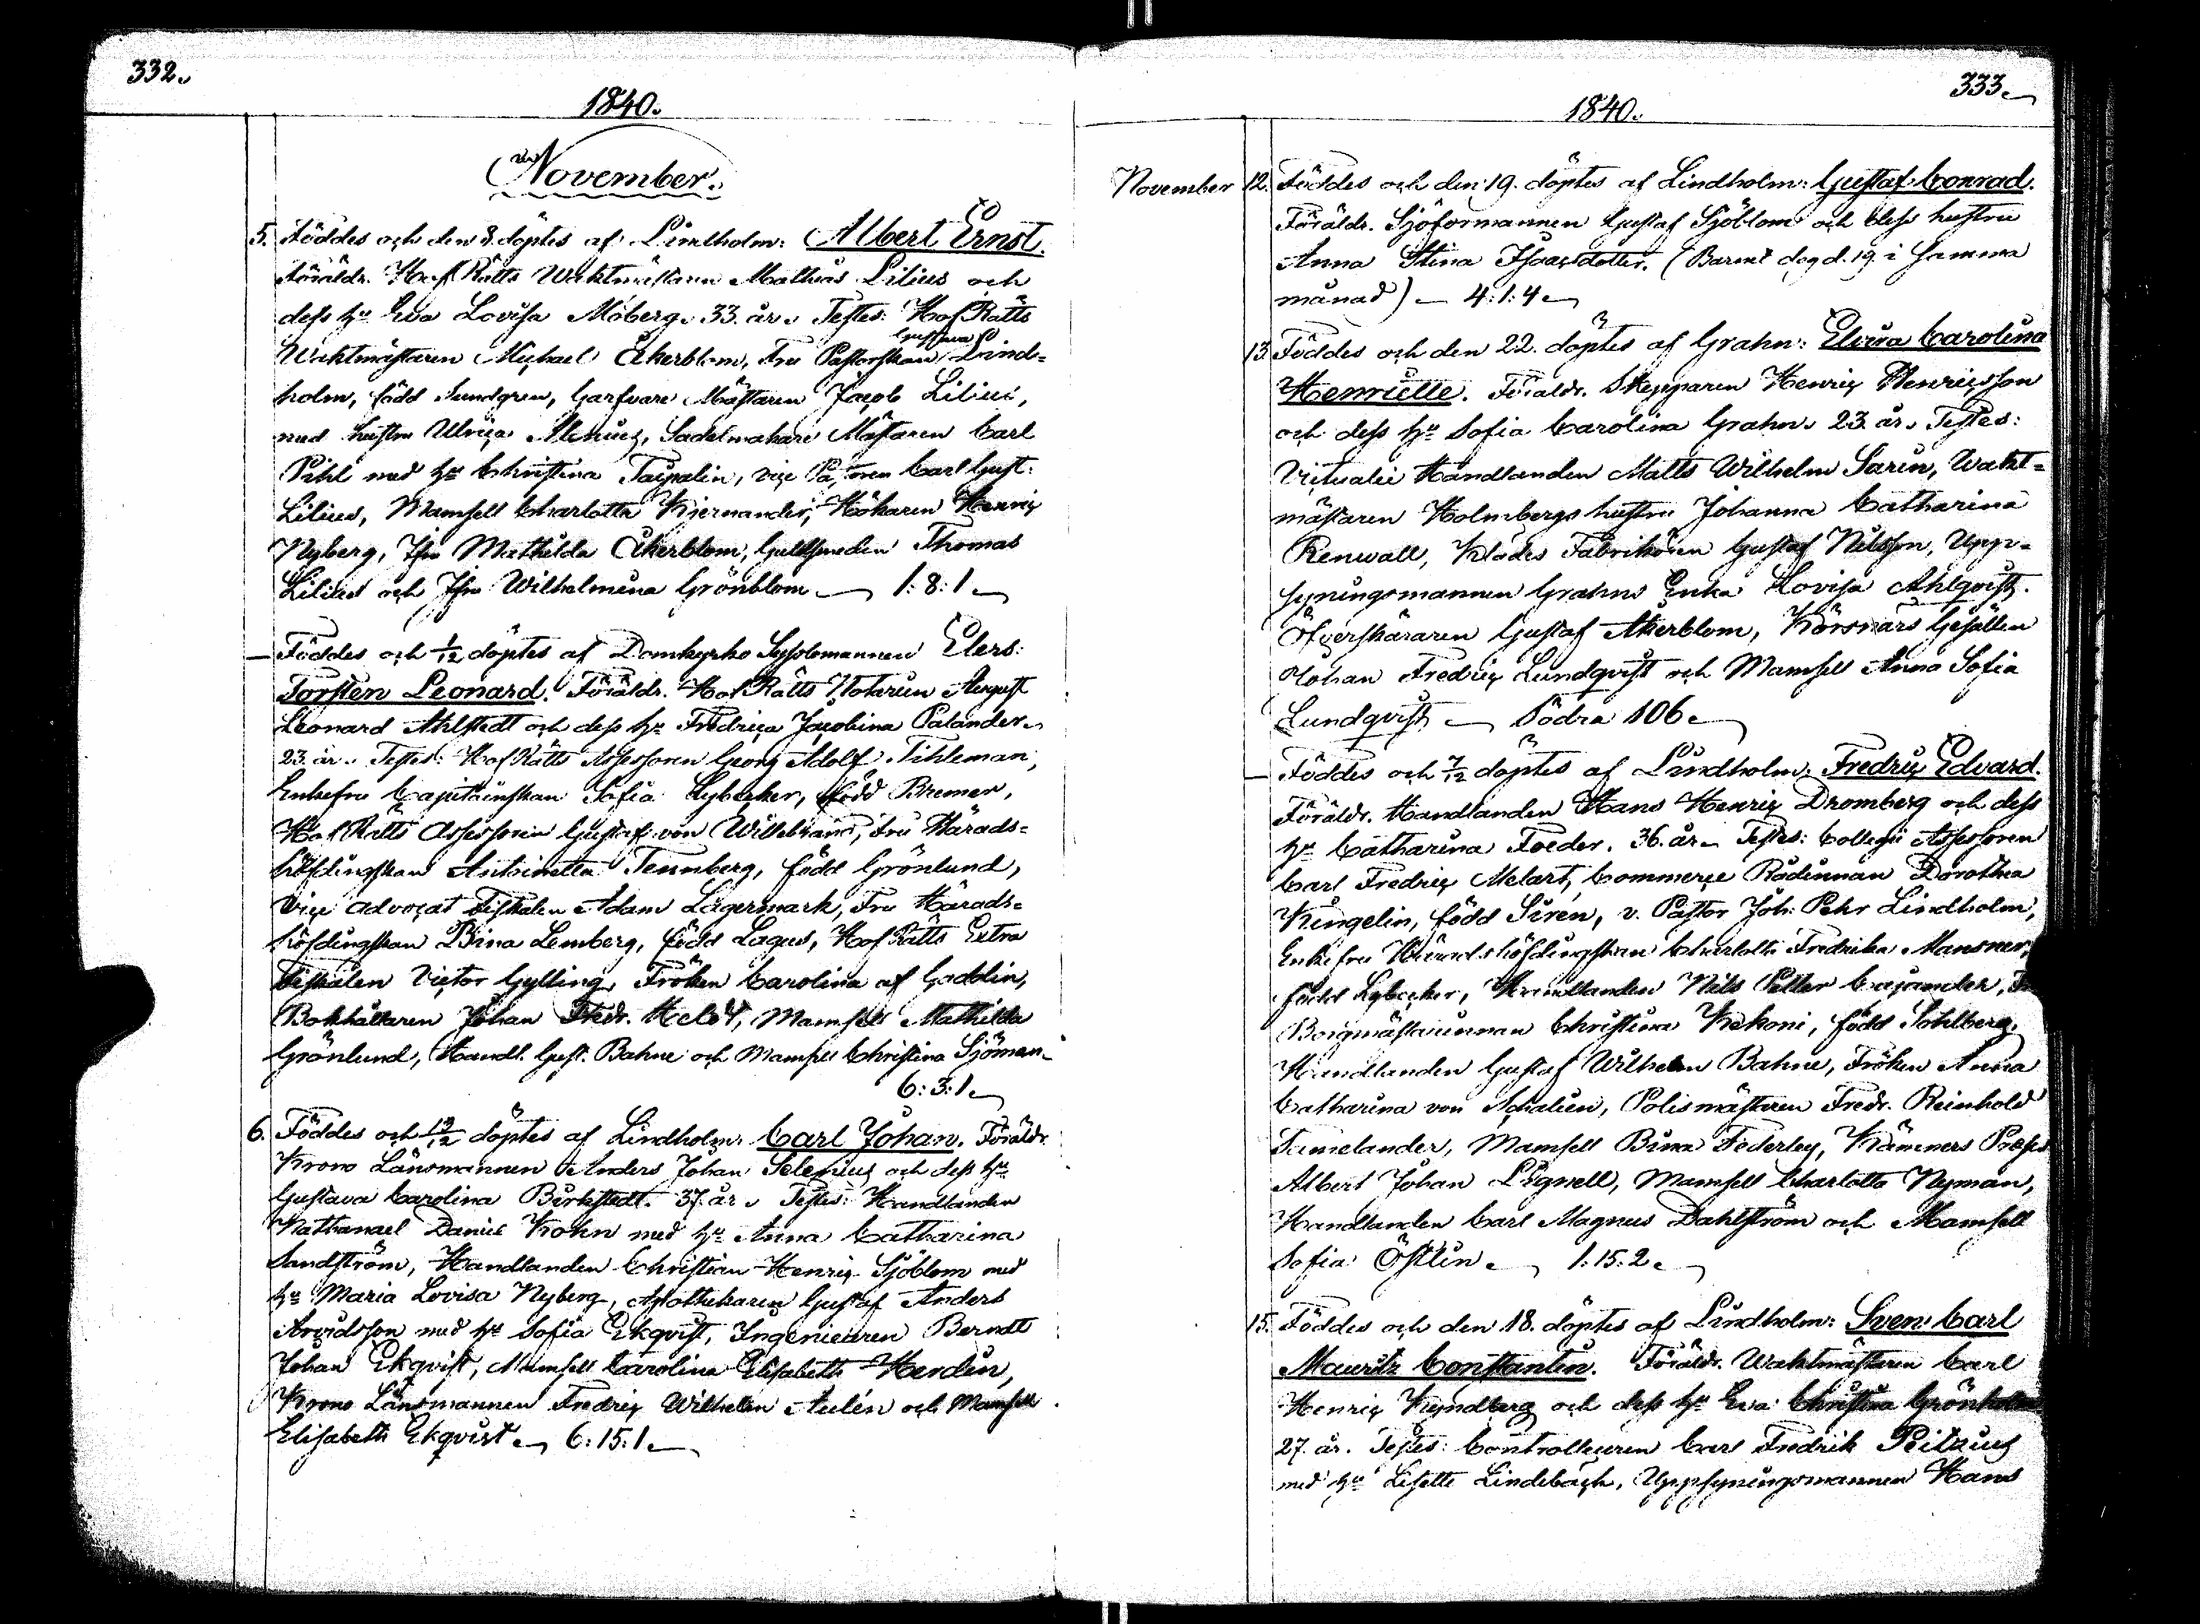 332.
1840.
November.
5. Föddes och den 8. döptes af Lindholm: Albert Ernst.
Föräldr. Hof Rätts Waktmästaren Mathias Lilius och
dess hu Eva Lovisa Moberg. 33. år. Testes: Hof Rätts
Waktmästaren Michael Åkerblom, Fru Pastorskan Gustava Lind=
holm, född Sundgren, Garfvare Mästaren Jacob Lilius,
med hustru Ulrica Alenius, Sadelmakare Mästaren Carl
Pihl med hu Christina Taipalin, vice Pastoren Carl Gust:
Lilius, Mamsell Charlotta Kjernander, Hökaren Henric
Nyberg, Jfru Mathilda Åkerblom, Guldsmeden Thomas
Lilius och Jfru Wilhelmina Grönblom 1:8:1
— Föddes och 1/12 döptes af Domkyrko Sysslomannen Elers:
Torsten Leonard. Föräldr. Hof Rätts Notarien August
Leonard Ahlstedt och dess hu Fredrica Jacobina Palander.
23. år. Testes: Hof Rätts Assessoren Georg Adolf Tihleman,
Enkefru Capitainskan Sofia Lybecker, född Bremer,
Hof Rätts Assessoren Gustaf von Willebrand, Fru Härads=
höfdingskan Antoinetta Tennberg, född Grönlund,
Vice Advocat Fiskalen Adam Lagermark, Fru Härads=
höfdingskan Bina Lemberg, född Lagus, Hof Rätts Extra
Fiskalen Victor Gylling, Fröken Carolina af Gadolin,
Bokhållaren Johan Fredr. Mamsell Mathilda
Grönlund, Handl. Gust. Bahne och Mamsell Christina Sjöman.
6:3:1
6. Föddes och 19/12 döptes af Lindholm: Carl Johan. Föräldr.
Krono Länsmannen Anders Johan Selenius och dess hu
Gustava Carolina Birkstedt. 37. år. Testes: Handlanden
Nathanael Daniel Krohn med hu Anna Catharina
Sandström, Handlanden Christian Henric Sjöblom med
hu Maria Lovisa Nyberg, Apothekaren Gustaf Anders
Arvidsson med hu Sofia Ekqvist, Ingenieuren Berndt
Johan Ekqvist, Mamsell Carolina Elisabeth Herdin,
Krono Länsmannen Fredric Wilhelm Aulén och Mamsell
Elisabeth Ekqvist. 6:15:1
333.
1840.
November 12. Föddes och den 19. döptes af Lindholm: Gustaf Conrad.
Föräldr. Sjöformannen Gustaf Sjöblom och dess hustru
Anna Stina Isaacsdotter. (Barnet dog d. 19. i samma
månad) 4:1:4
13. Föddes och den 22. döptes af Grahn: Elvira Carolina
Henriette. Föräldr. Skepparen Henric Henricsson
och dess hu Sofia Carolina Grahn. 23. år. Testes:
Victualie Handlanden Matts Wilhelm Sarin, Wakt=
mästaren Holmbergs hustru Johanna Catharina
Renwall, Klädes Fabrikören Gustaf Nilsson, Upp=
syningsmannen Grahns Enka Lovisa Ahlqvist.
Öfverskäraren Gustaf Åkerblom, Körsnärs Gesällen
Johan Fredric Lundqvist och Mamsell Anna Sofia
Lundqvist Södra 106
— Föddes och 7/12 döptes af Lindholm: Fredric Edvard.
Föräldr. Handlanden Hans Henric Dromberg och dess
hu Catharina Foeder. 36. år. Testes: Collegii Assessoren
Carl Fredric Melart, Commerce Rådinnan Dorothea
Kingelin, född Sirén, v. Pastor Joh: Pehr Lindholm,
Enkefru Häradshöfdingskan Charlotta Fredrika Mansner,
född Lybecker, Handlanden Nils Petter Cajander,
Borgmästarinnan Christina Kekoni, född Sohlberg,
Handlanden Gustaf Wilhelm Bahne, Fröken Anna
Catharina von Schalien, Polismästaren Fredr. Reinhold
Tamelander, Mamsell Bina Federley, Kämners Præses
Albert Johan Mamsell Charlotta Nyman,
Handlanden Carl Magnus Dahlström och Mamsell
Sofia Östlin. 1.15.2.
15. Föddes och den 18. döptes af Lindholm: Sven Carl
Mauritz Constantin. Föräldr. Waktmästaren Carl
Henric Kyndberg och dess hu Eva Christina Grönholm
27. år. Testes: Controlleuren Carl Fredrik Peitzius
med hu Lisette Lindebäck, Uppsyningsmannen Hans